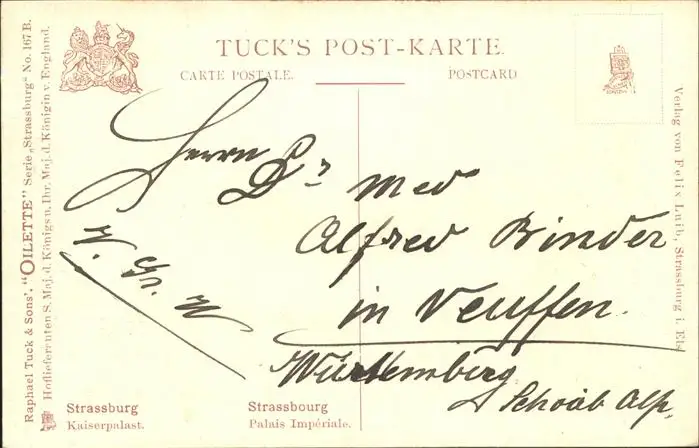 TUCK'S POST-KARTE.
CARTE POSTALE.
POSTCARD
Raphael Tuck & Sons'. "OILETTE" Serie „Strassburg“ No. 167 B.
Hoflieferanten S. Maj. d. Königs u. Ihr. Maj. d. Königin v. England.
Verlag von Felix Luib, Strassburg i. Els
Herrn Dr med
Alfred Binder
in Neuffen.
Württemberg
Schwäb Alp.
Strassburg
Kaiserpalast.
Strassbourg
Palais Impériale.